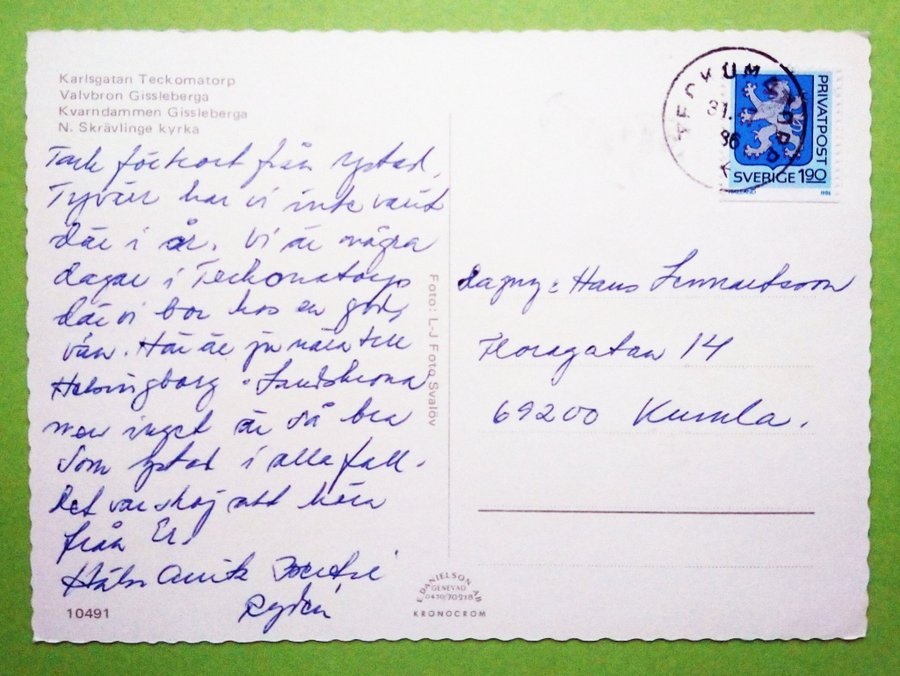 Karlsgatan Teckomatorp
Valvbron Gissleberga
Kvarndammen Gissleberga
N. Skrävlinge kyrka
Tack för kort från Ystad,
Tyvärr har vi inte varit
där i år. Vi är några
dagar i Teckomatorp
där vi bor hos en god
vän. Här är ju nära till
Helsingborg o Landskrona
men inget är så bra
som Ystad i alla fall.
Det var skoj att höra
från Er.
Hälsn Anita
Rydén
10491
Foto: L-J Foto Svalöv
E. DANIELSON AB
GENEVAD
0430/70218
KRONOCROM
TECKOMATORP
31.
86
PRIVATPOST
SVERIGE 1.90
Dagny o Hans Lennartsson
Floragatan 14
69200 Kumla.